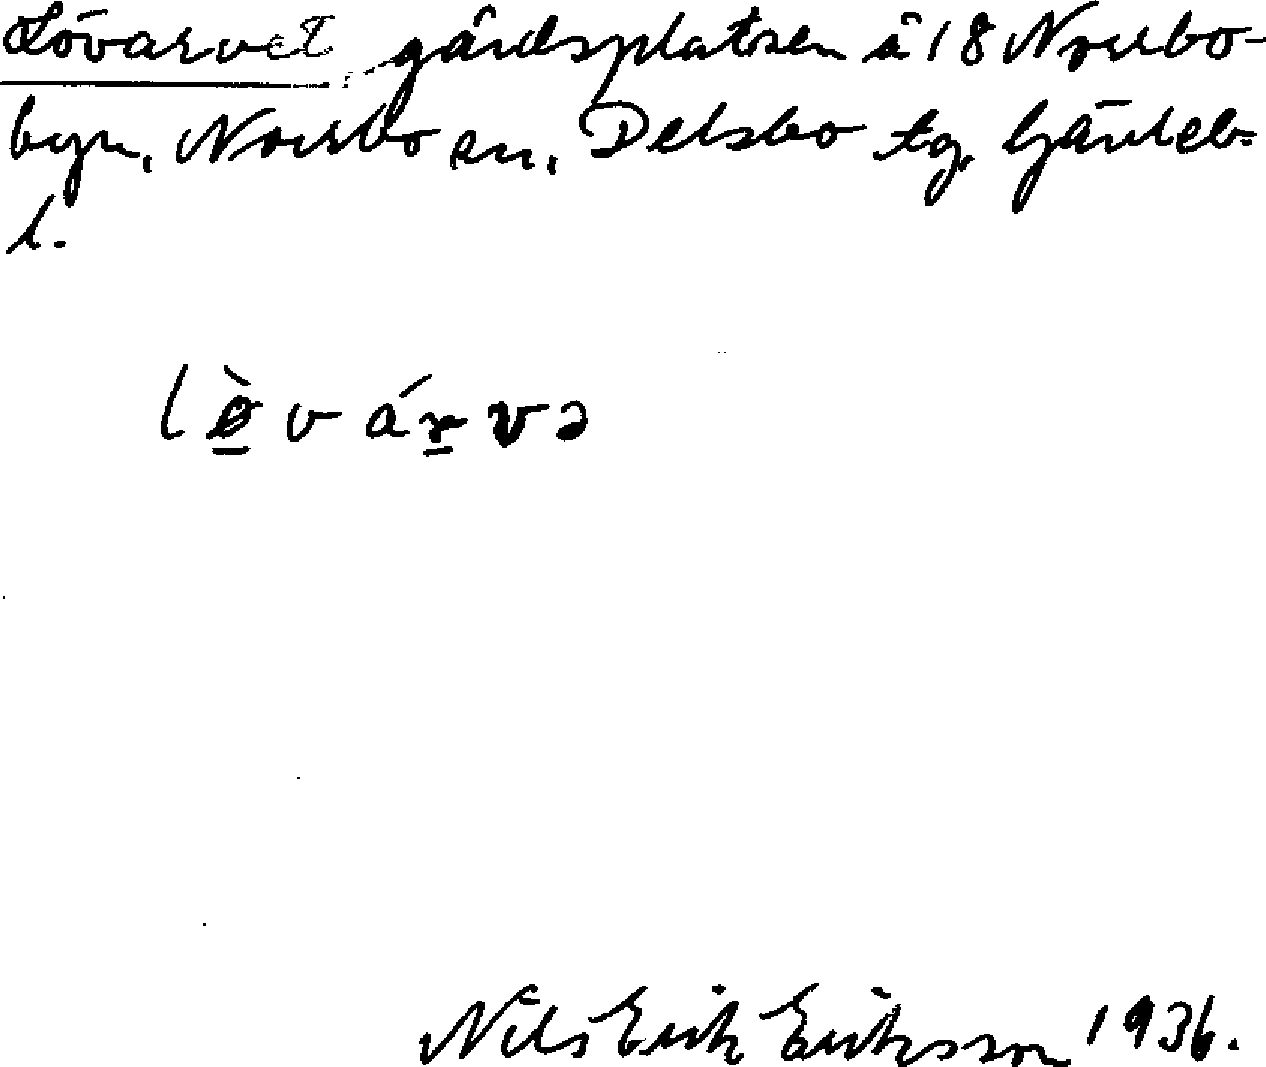 Lövarvet, gårdsplatsen å 18 Norrbo-
byn, Norrbo sn, Delsbo tg, Gävleb-
l.
lø̀várvə
Nils Erik Eriksson 1936.